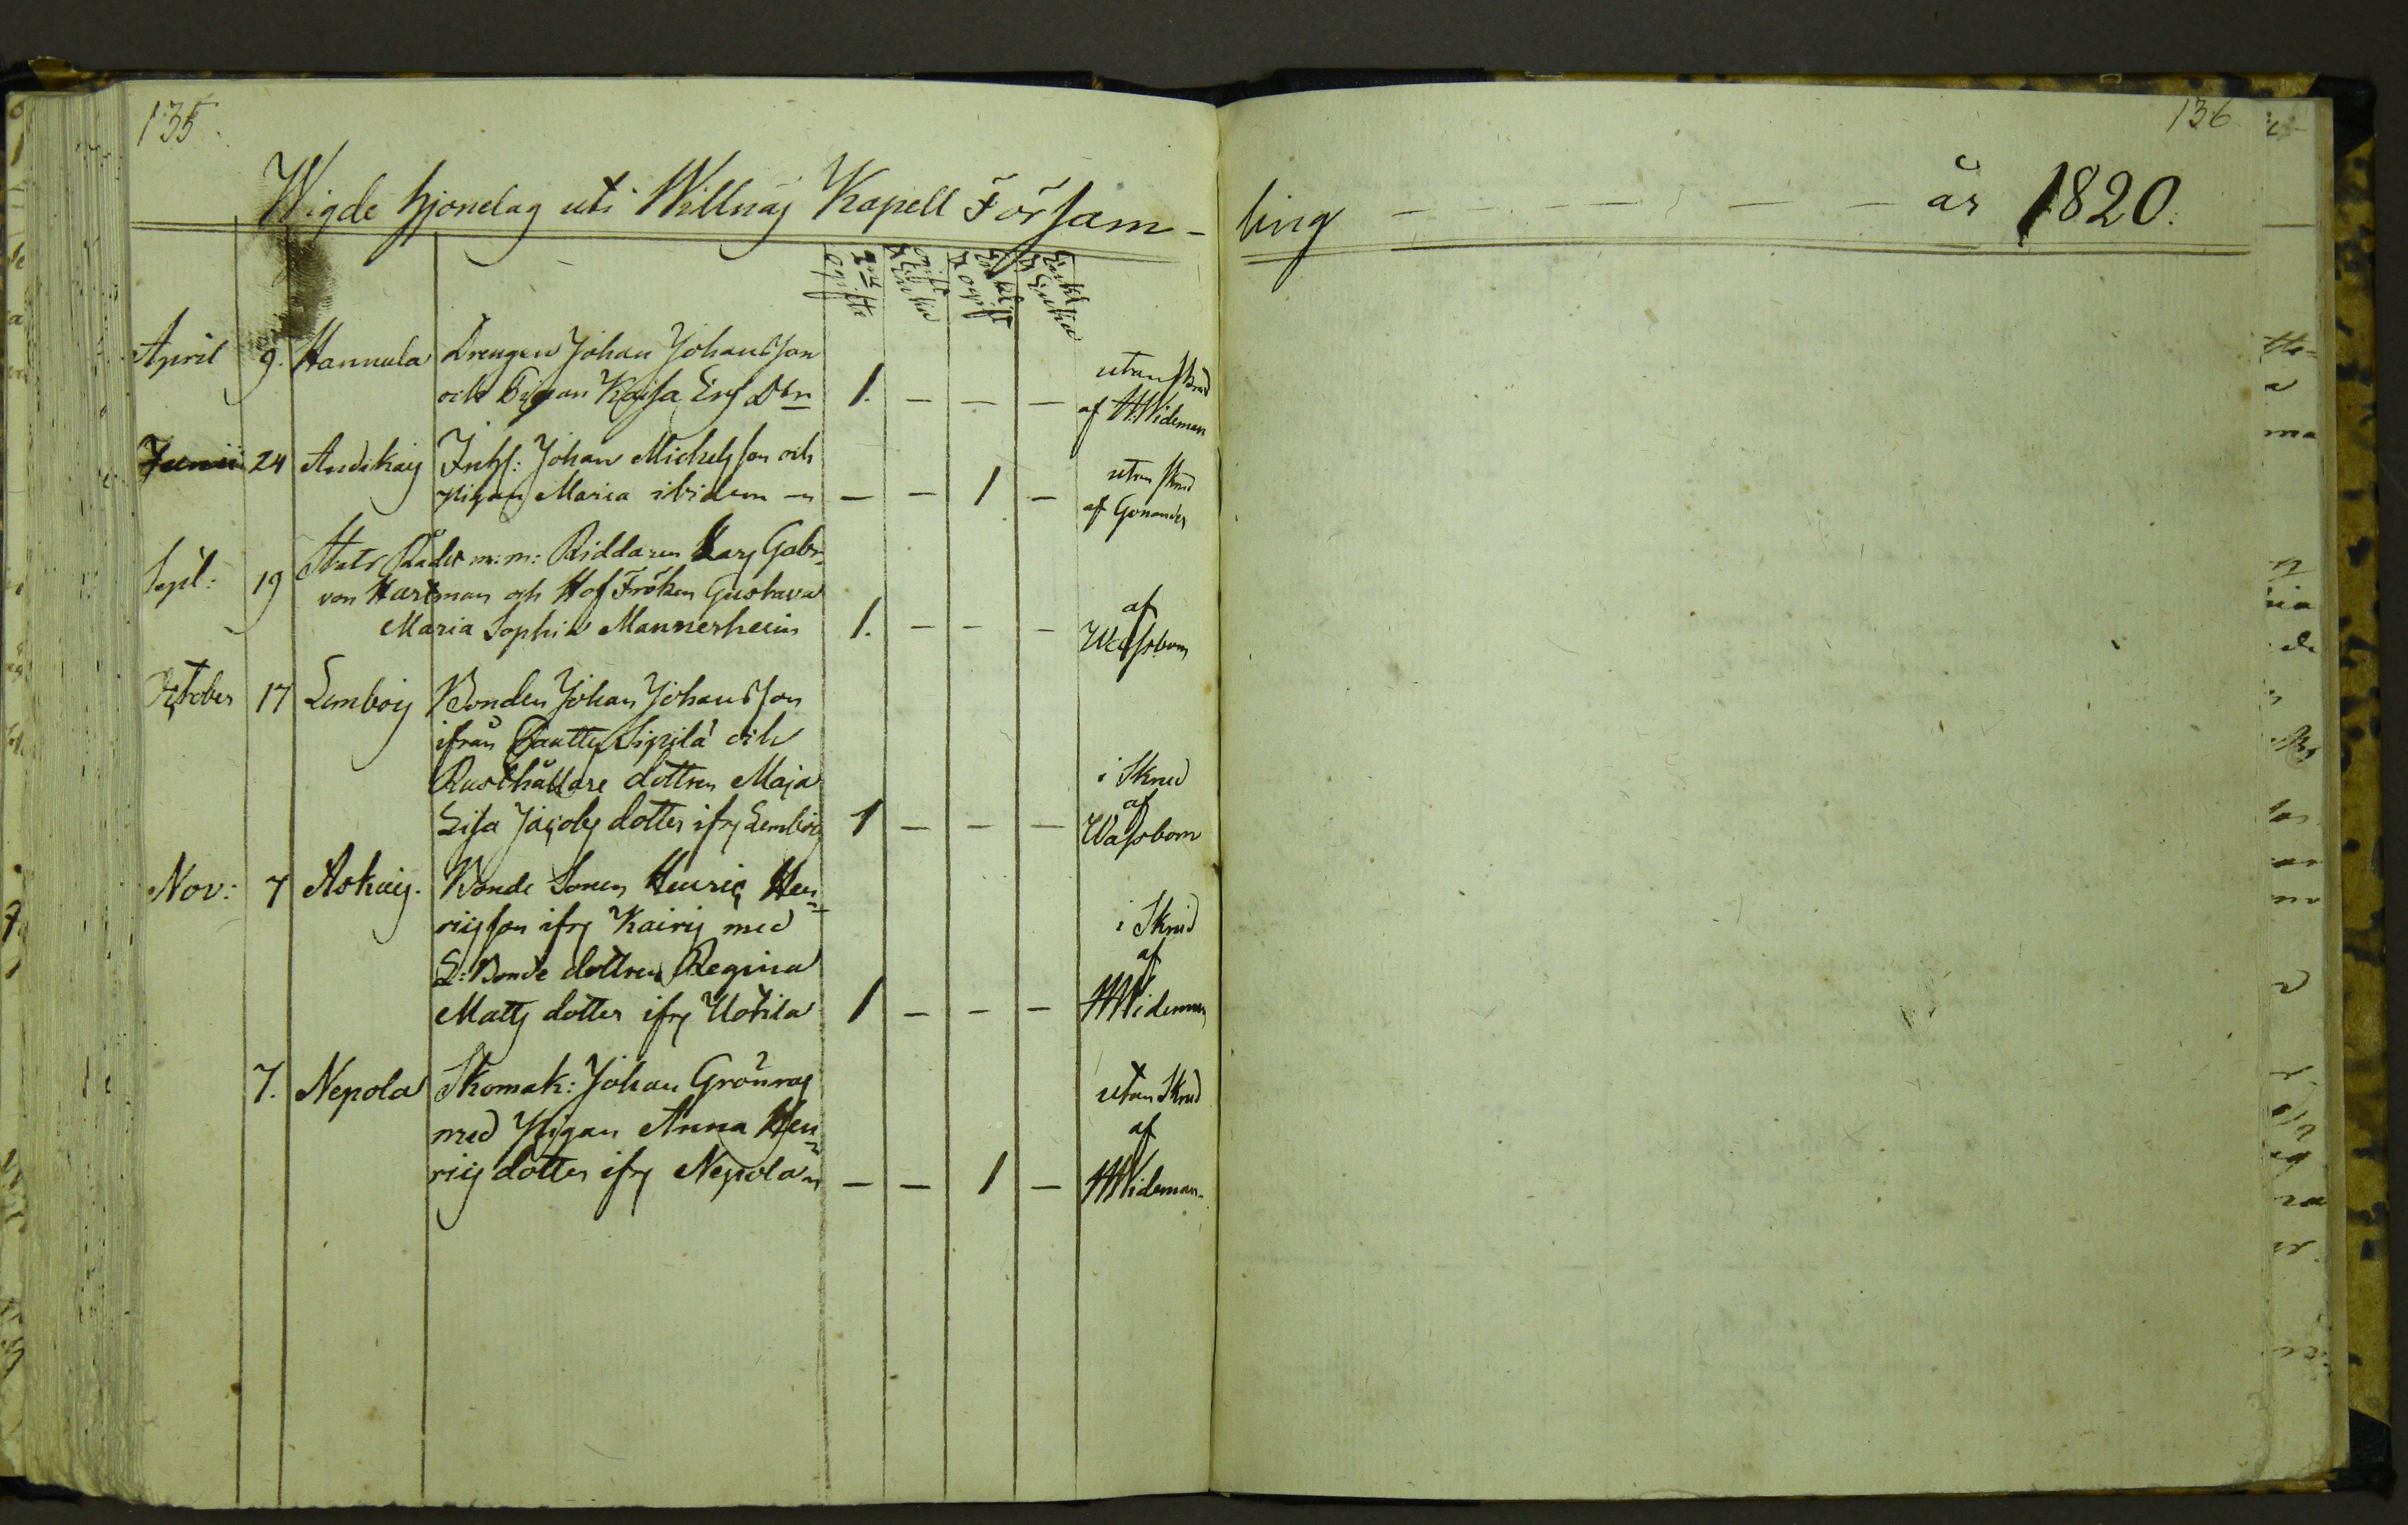 135.
136
Wigde hjonelag uti Willnäs Kapell Försam-
ling - - - - - - år 1820.
2ne ogifte
ogift & Enka
Enkl & ogift
Enkl & Enka
April 9. Hannula Drengen Johan Johansson
och Pigan Kajsa Ers Dtr 1. - - -
utan Skrud
af HWideman
Junii 24 Andikais Inhs: Johan Michelsson och
Pigan Maria ibidem - - - 1 -
utan Skrud
af Gonander
Stats Rådet m: m: Riddaren Lars Gabr.
Sept: 19 von Hartman och Hof Fröken Gustava
Maria Sophia Mannerheim 1. - - -
af
Wassbom
October 17 Lembois Bonden Johan Johansson
ifrån Sipilä och
Rusthållare dottren Maja
Lisa Jacobs dotter ifr Lembois 1 - - -
i Skrud
af
Wassbom
Nov: 7 Askais. Bonde Sonen Henric Hen-
ricsson ifr Kairis med
L: Bonde dottren Regina
Matts dotter ifr Uotila 1 - - -
i Skrud
af
HWideman
7. Nepola Skomak: Johan Grönros
med Pigan Anna Hen-
rics dotter ifr Nepola - - 1 -
utan Skrud
af
HWideman.